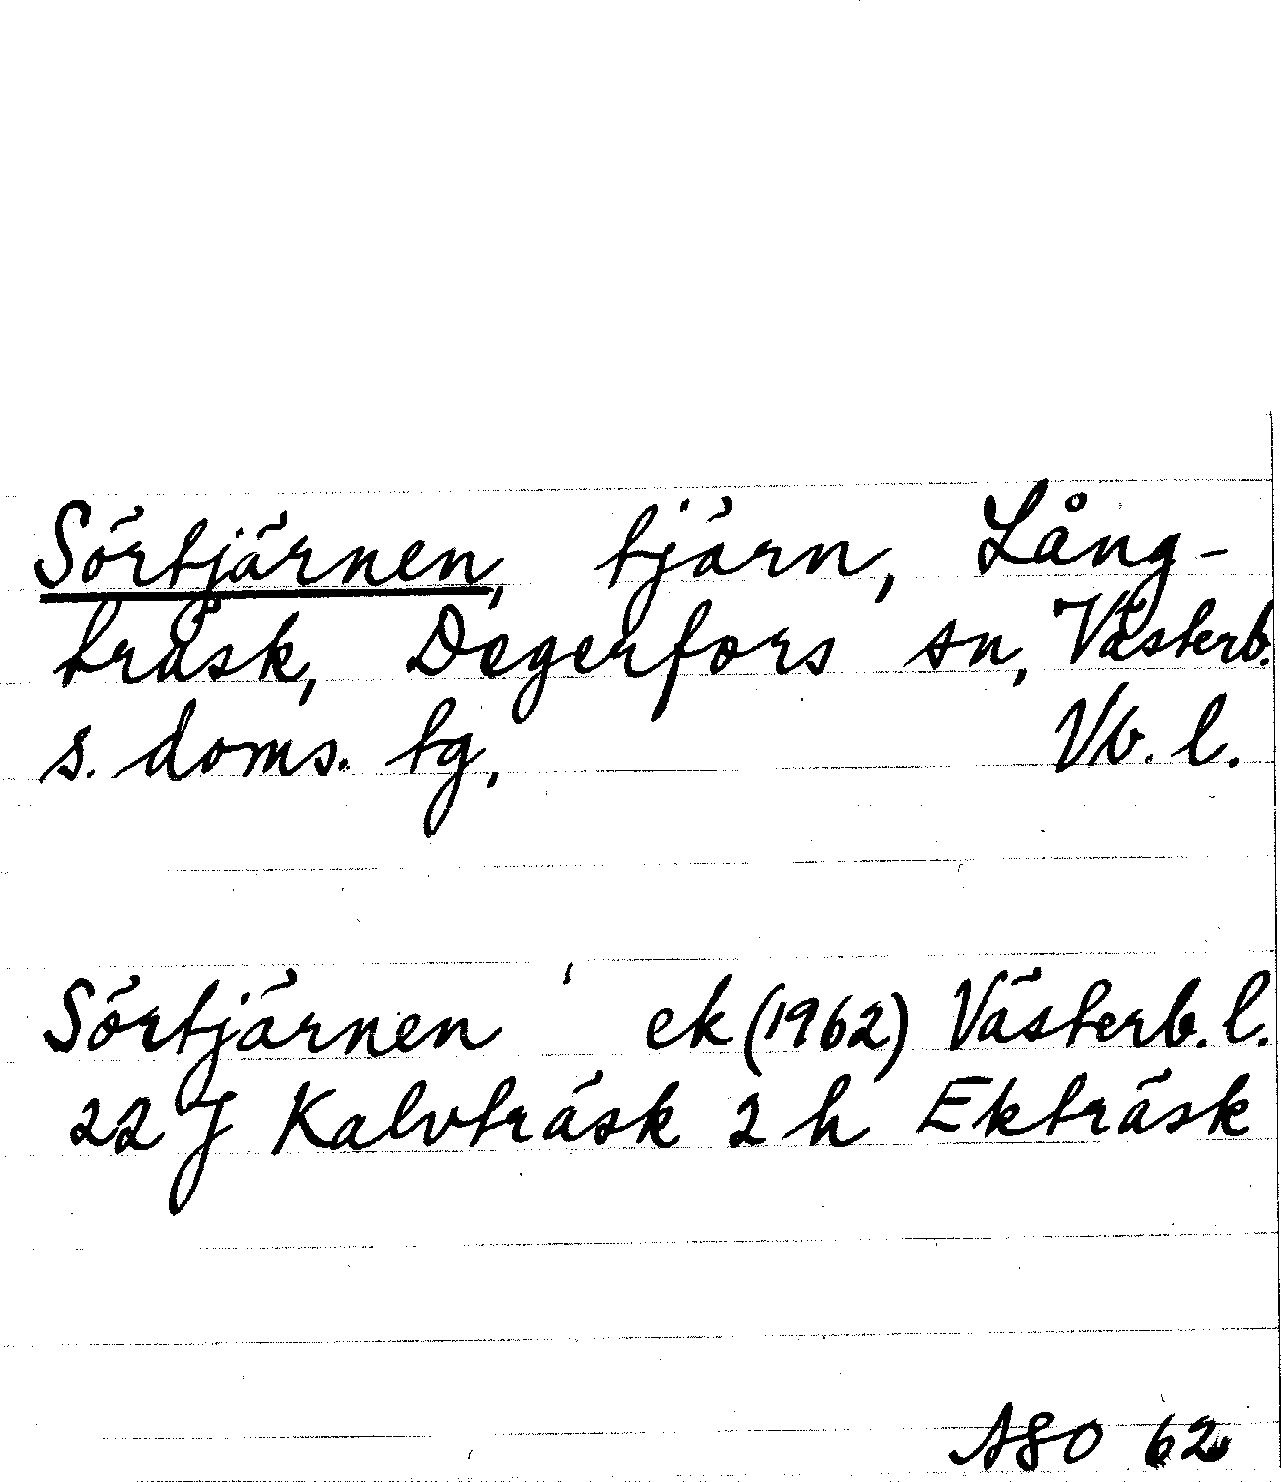 Sörtjärnen, tjärn, Lång-
träsk, Degerfors sn, Västerb.
s. doms. tg. Vb. l.
Sörtjärnen ek (1962) Västerb. l.
22 J Kalvträsk 2 h Ekträsk
ASO 62